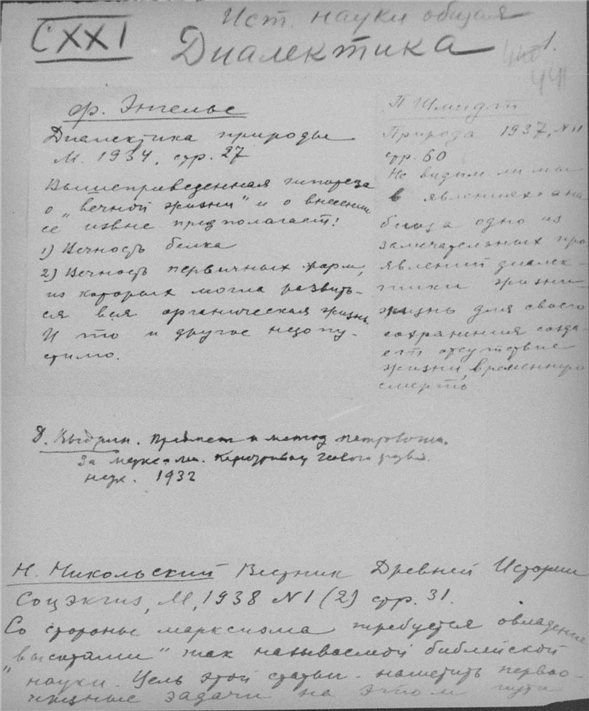 CXXI
Ист. науки общая
Диалектика
1.
441
Ф. Энгельс
Диалектика природы
М. 1934, стр. 27
Вышеприведенная гипотеза
о "вечной жизни" и о внесении
ее извне предполагает:
1) Вечность белка
2) Вечность первичных форм,
из которых могла развить-
ся вся органическая жизнь
И то и другое недопу-
стимо.
П Шмидт
Природа 1937, №11
стр. 60
Не видим ли мы
в явлениях ана
биоза одно из
замечательных про
явлений диалек-
тики жизни -
жизнь для своего
сохранения созда-
ет отсутствие
жизни временную
смерть
Д. Предмет и метод петрографии.
За марксизм.
наук. 1932
Н. Никольский Вестник Древней Истории
Соцэкгиз, М, 1938 N1 (2) стр. 31.
Со стороны марксизма требуется овладение
"высотами" так называемой библейской
науки. Цель этой статьи - наметить перво-
задачи на этом пути